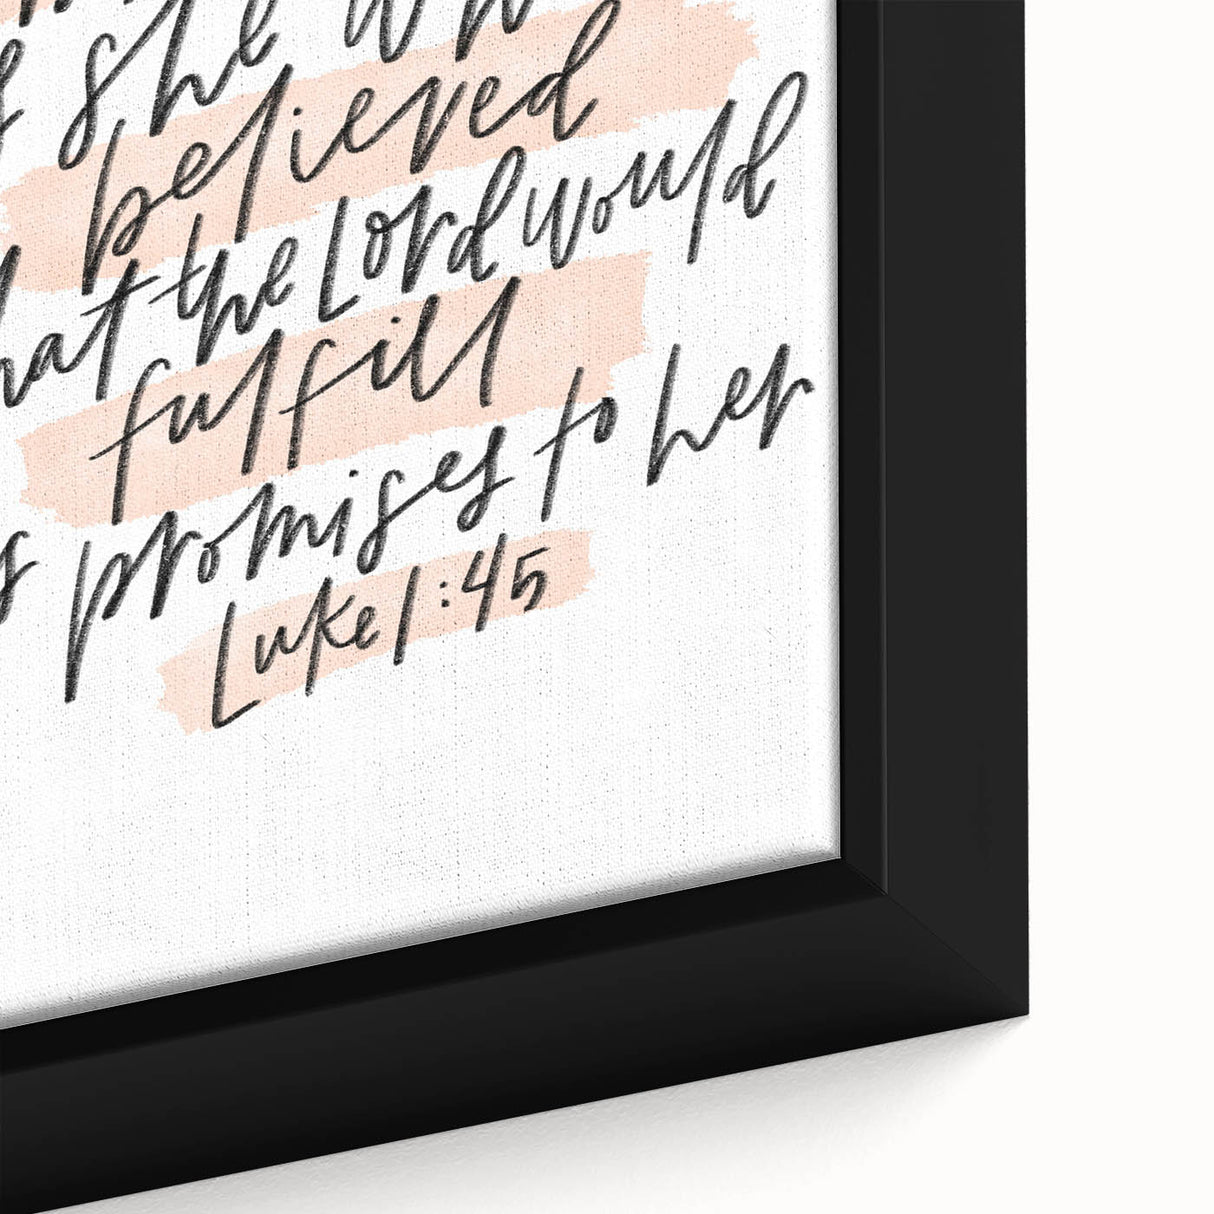 is she who
believed
that the Lord would
fulfill
promises to her
Luke 1:45